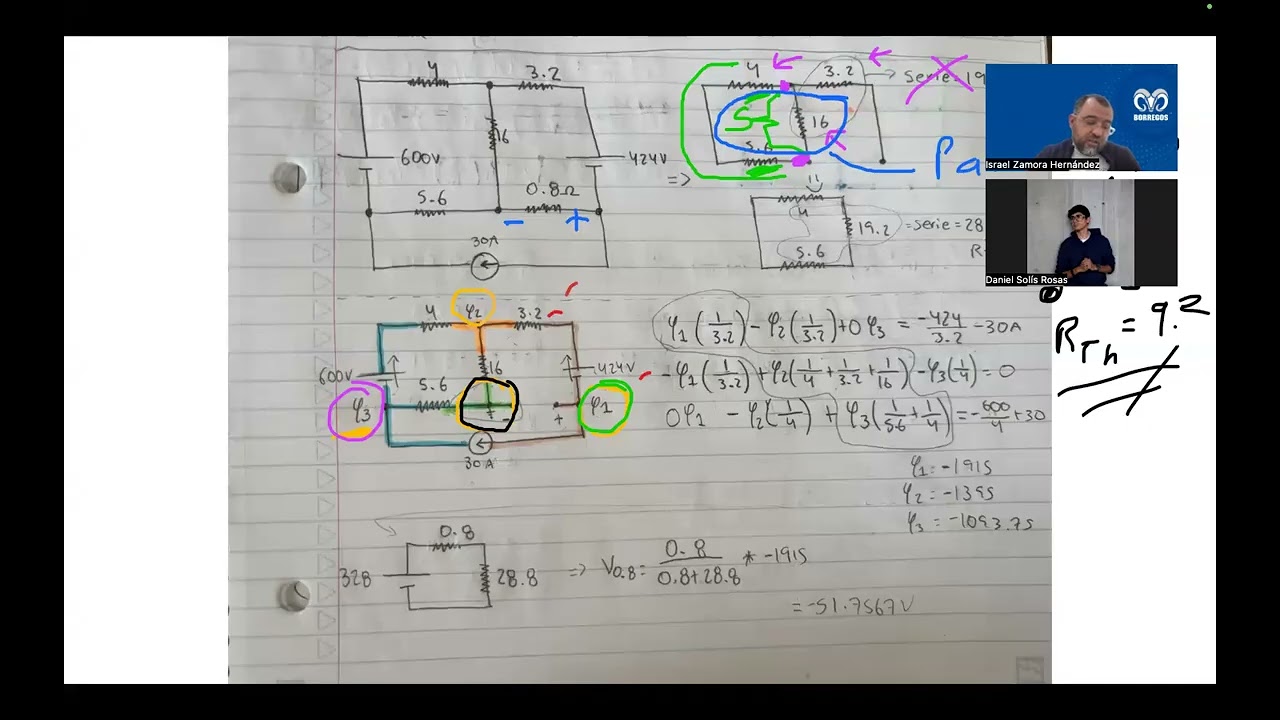 4
3.2
16
600V
424V
5.6
0.8Ω
- +
30A
=>
4
3.2
16
5.6
serie = 19
Pa
4
19.2
5.6
= serie = 28
R
BORREGOS
Israel Zamora Hernández
Daniel Solís Rosas
RTh = 9.2
4
φ2
3.2
16
600V
424V
5.6
φ3
φ1
+ -
+
30A
φ1(1/3.2) - φ2(1/3.2) + 0φ3 = -424/3.2 - 30A
- φ1(1/3.2) + φ2(1/4 + 1/3.2 + 1/16) - φ3(1/4) = 0
0φ1 - φ2(1/4) + φ3(1/5.6 + 1/4) = -600/4 + 30
φ1 = -1915
φ2 = -1395
φ3 = -1093.75
0.8
328
28.8
=> V0.8 = 0.8/0.8+28.8 * -1915
= -51.7567V